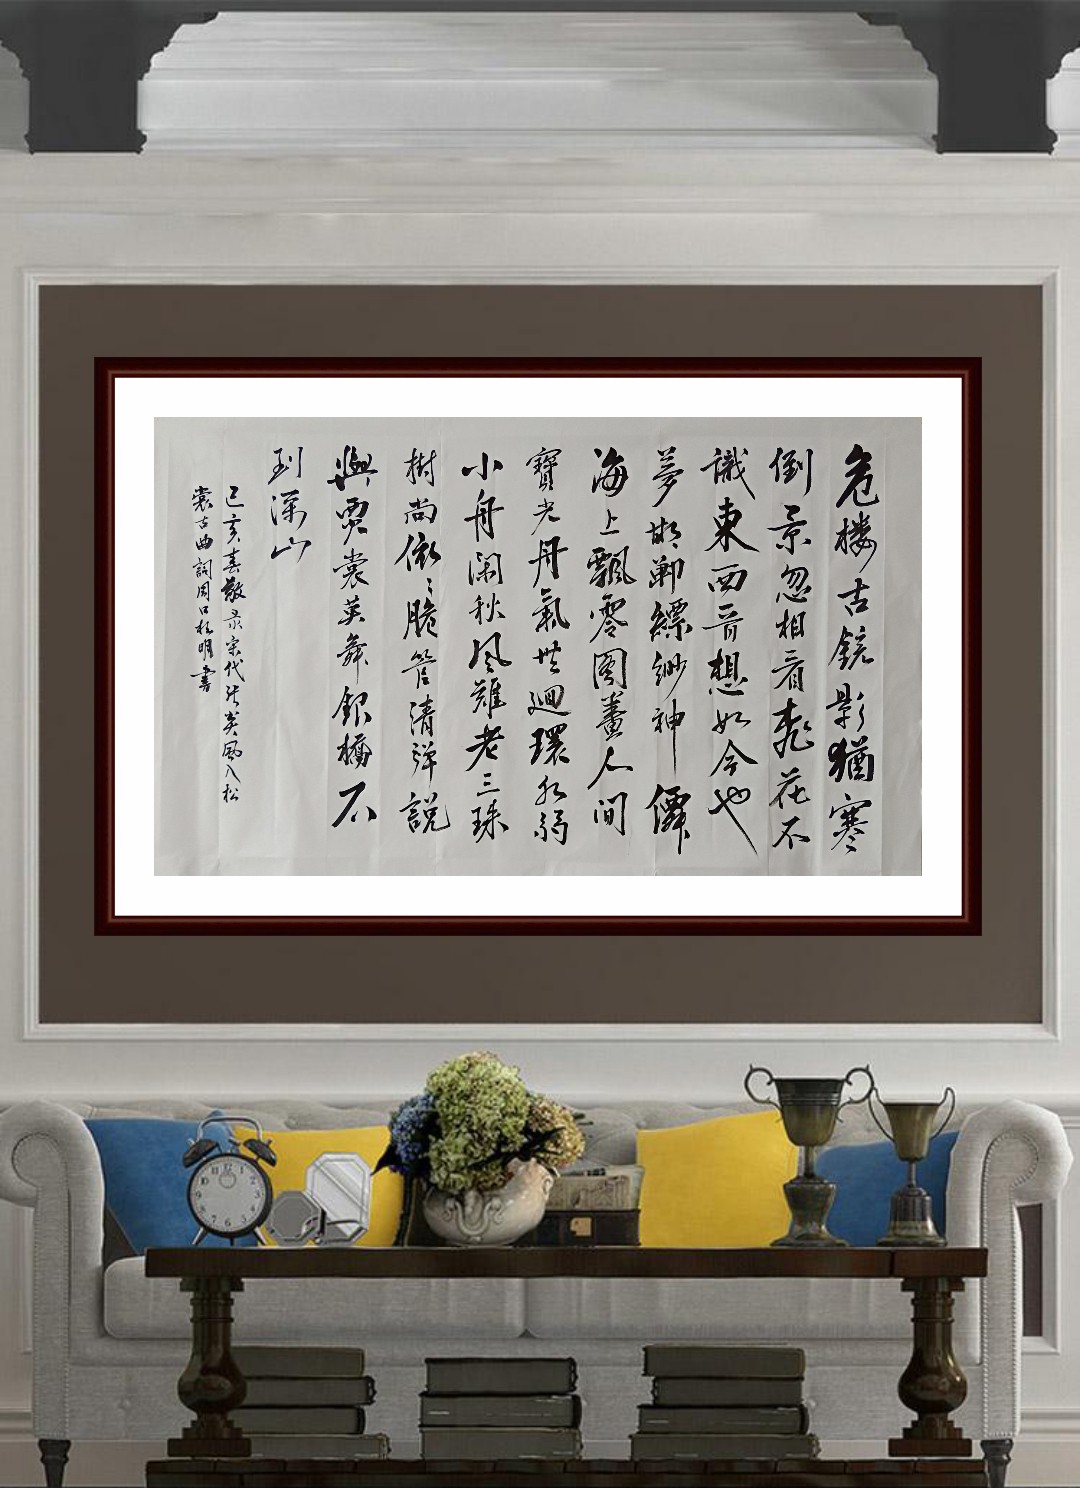 危楼古鏡影猶寒
倒景忽相看桃花不
識東西晉想如今也
夢邯鄲縹緲神僊
海上飄零圖畫人間
寶光丹氣共迴環水弱
小舟闲秋风難老三珠
樹尚依々脆管清弹説
與霓裳莫舞銀橋不
到深山
己亥春敬录宋代张炎風入松
裳古曲詞周口明書